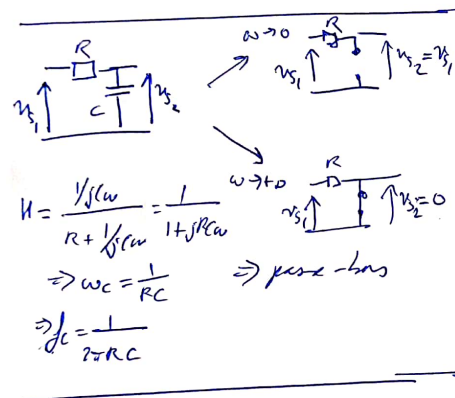 R
C
v_{s_1}
v_{s_2}
ω→0
R
v_{s_1}
v_{s_2}=v_{s_1}
ω→+∞
R
v_{s_1}
v_{s_2}=0
H = \frac{1/jCω}{R + 1/jCω} = \frac{1}{1+jRCω}
⇒ ω_c = \frac{1}{RC} ⇒ passe-bas
⇒ f_c = \frac{1}{2πRC}